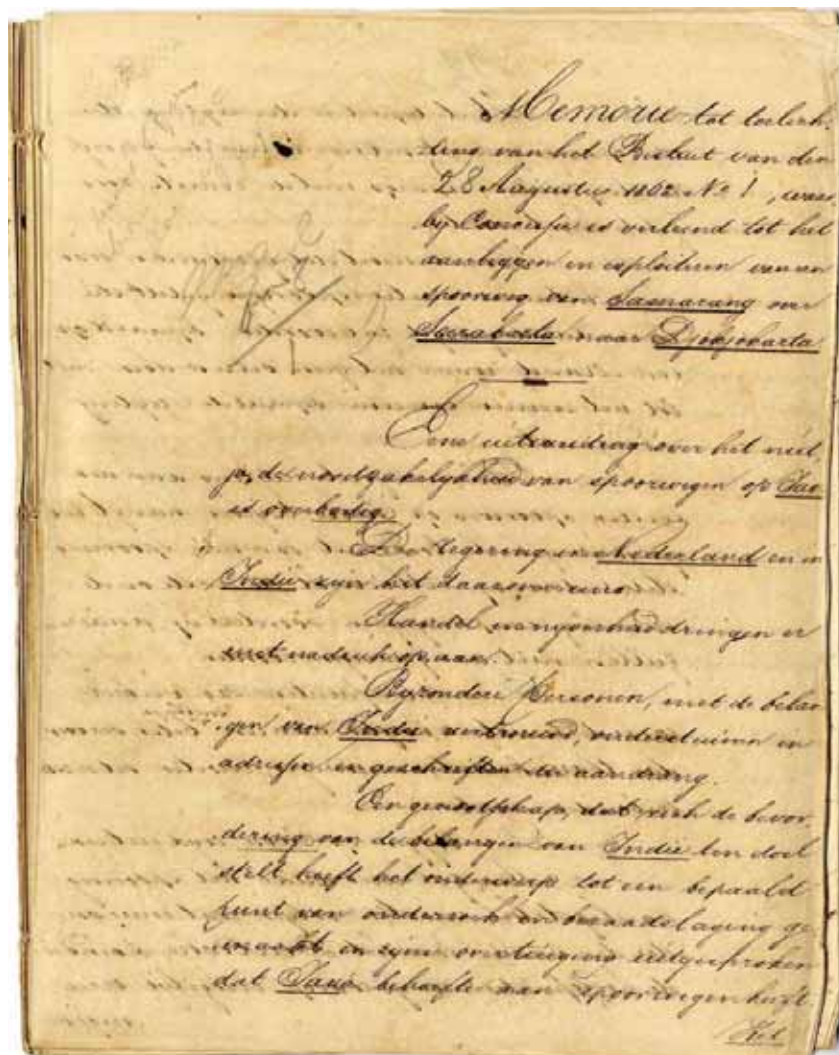 Memorie tot toelich-
ting van het Besluit van den
28 Augustus 1862 No 1, waar
bij Concessie is verleend tot het
aanleggen en exploiteren van een
spoorweg van Samarang over
Soerakarta naar Djokjokarta
Eene uitvoerige over het nut,
ja, de noodzakelijkheid van spoorwegen op Java
is overbodig.
De regering in Nederland en in
Indië zijn het daarover eens.
Handel en nijverheid dringen er
met nadruk op aan.
Byzondere Personen, met de belan-
gen van Indië vertrouwd, in
adressen en geschriften die aandrang.
Een genootschap, dat zich de bevor-
dering van de belangen van Indië ten doel
stelt, heeft het onderwerp tot een bepaald
punt van onderzoek en beraadslaging ge
maakt en zijne overtuiging uitgesproken
dat Java behoefte aan spoorwegen heeft
Het